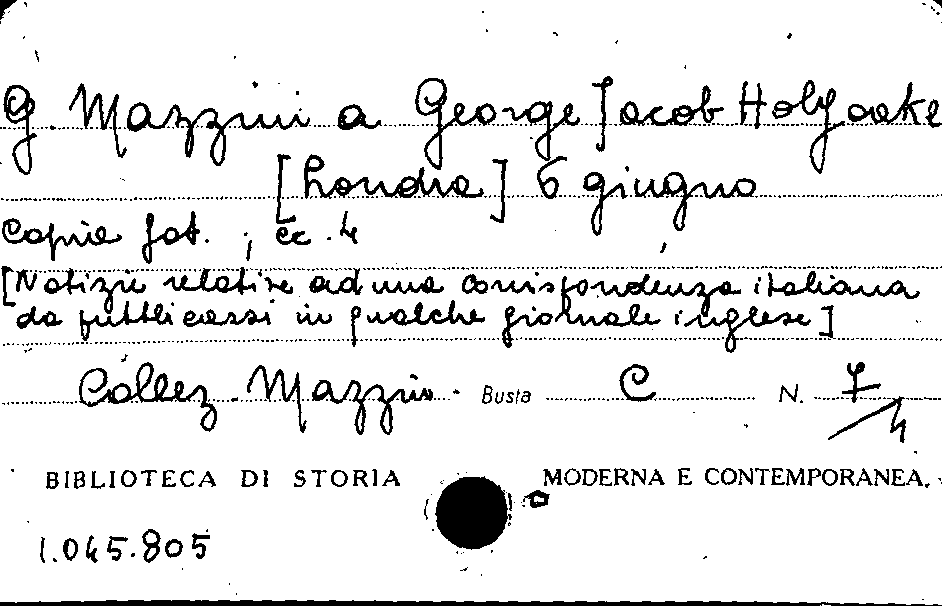 G. Mazzini a George Jacob Holyoake
[Londra] 6 giugno
Copia fot. ; cc. 4
[Notizie relative ad una corrispondenza italiana
da pubblicarsi in qualche giornale inglese]
Collez. Mazzin. Busta C N. 7/4
BIBLIOTECA DI STORIA MODERNA E CONTEMPORANEA.
1.045.805